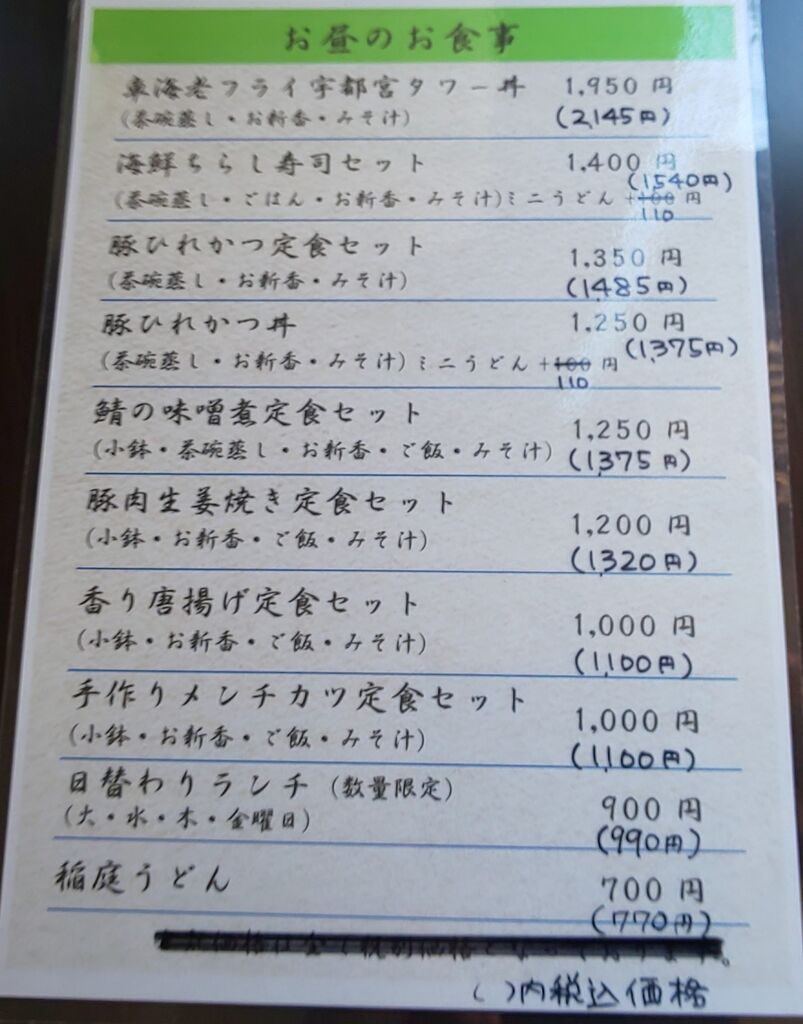 お昼のお食事
車海老フライ宇都宮タワー丼 1,950 円
(茶碗蒸し・お新香・みそ汁) (2,145円)
海鮮ちらし寿司セット 1,400 円
(1,540円)
(茶碗蒸し・ごはん・お新香・みそ汁)ミニうどん +100 円
110
豚ひれかつ定食セット 1,350 円
(茶碗蒸し・お新香・みそ汁) (1,485円)
豚ひれかつ丼 1,250 円
(1,375円)
(茶碗蒸し・お新香・みそ汁)ミニうどん +100 円
110
鯖の味噌煮定食セット 1,250 円
(小鉢・茶碗蒸し・お新香・ご飯・みそ汁) (1,375円)
豚肉生姜焼き定食セット 1,200 円
(小鉢・お新香・ご飯・みそ汁) (1,320円)
香り唐揚げ定食セット 1,000 円
(小鉢・お新香・ご飯・みそ汁) (1,100円)
手作りメンチカツ定食セット 1,000 円
(小鉢・お新香・ご飯・みそ汁) (1,100円)
日替わりランチ (数量限定) 900 円
(火・水・木・金曜日) (990円)
稲庭うどん 700 円
(770円)
( )内税込価格